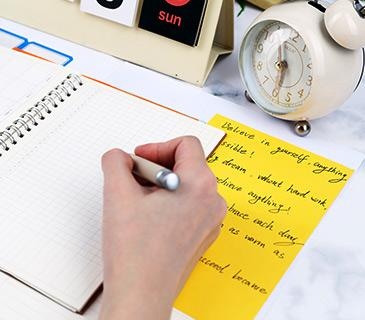 sun
Believe in yourself, anything
ssible!
dream, without hard work,
achieve anything!
brace each day
as warm as
because